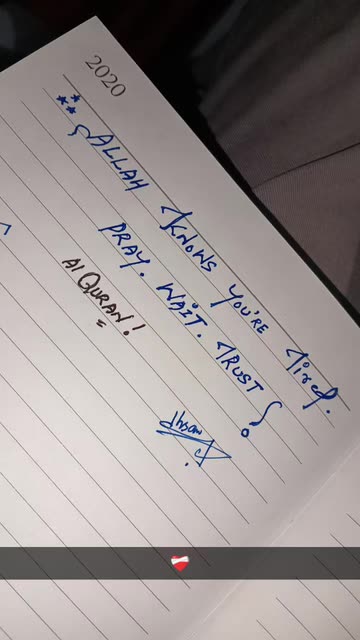 2020
ALLAH KNOWS YOU'RE Tired.
PRAY. WAIT. TRUST
Al QURAN!